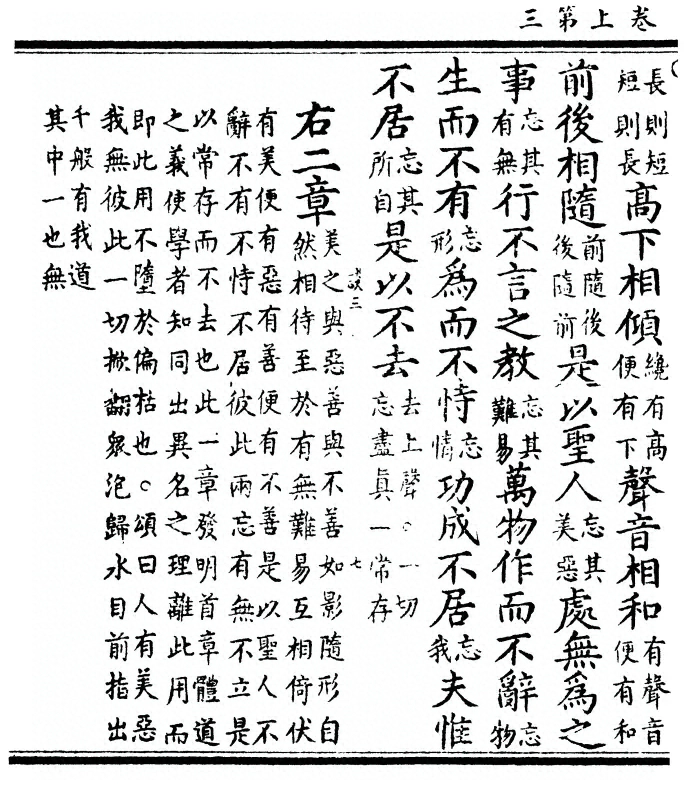 卷上第三
長則短短則長高下相傾纔有高便有下聲音相和有聲音便有和
前後相隨前隨後後隨前是以聖人忘其美惡處無爲之
事忘其有無行不言之教忘其難易萬物作而不辭忘物
生而不有忘形爲而不恃忘情功成不居忘我夫惟
不居忘其所自是以不去去上聲○一切忘盡眞一常存
談三 七
右二章美之與惡善與不善如影隨形自然相待至於有無難易互相倚伏
有美便有惡有善便有不善是以聖人不
辭不有不恃不居彼此兩忘有無不立是
以常存而不去也此一章發明首章體道
之義使學者知同出異名之理離此用而
即此用不墮於偏枯也○頌曰人有美惡
我無彼此一切掀翻眾泡歸水目前指出
千般有我道
其中一也無